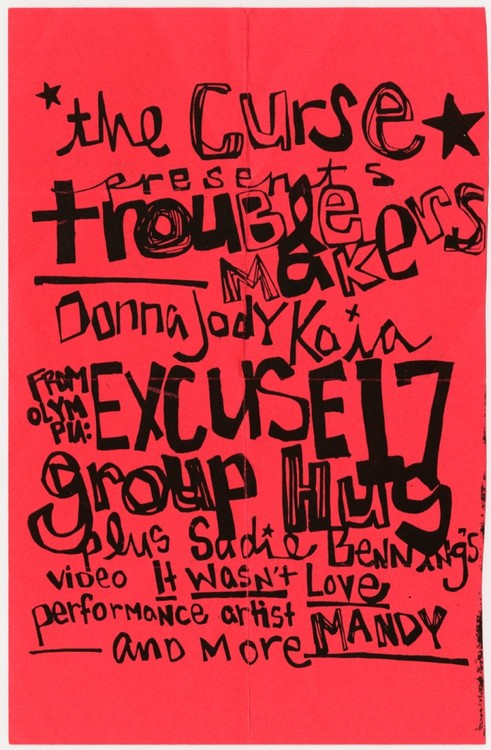 the Curse
presents
trouBleMakers
Donna Jody Kaia
FROM OLYMPIA: EXCUSE 17
group Hug
plus Sadie BENNiNg's
video It wasn't Love
performance artist
MANDY
and More